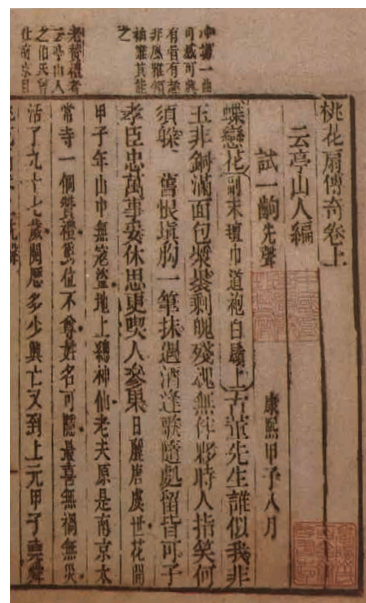 冲塲一曲
可感可興
有旨有
非風雅領
袖誰其能
之
老贊禮者
云亭山人
之伯氏曾
仕南京目
桃花扇傳奇卷上
云亭山人編
試一齣 先聲 康熙甲子八月
蝶戀花 副末氊巾道袍白鬚上 古董先生誰似我非
玉非銅滿面包漿裹剩魄殘魂無伴夥時人指笑何
須躲 舊恨塡胸一筆抹遇酒逢歌隨處留皆可子
孝臣忠萬事妥休思更喫人參果 日麗唐虞世花開
甲子年山中無寇盜地上總神仙老夫原是南京太
常寺一個贊禮爵位不尊姓名可隱最喜無禍無災
活了九十七歲閱歷多少興亡又到上元甲子堯舜